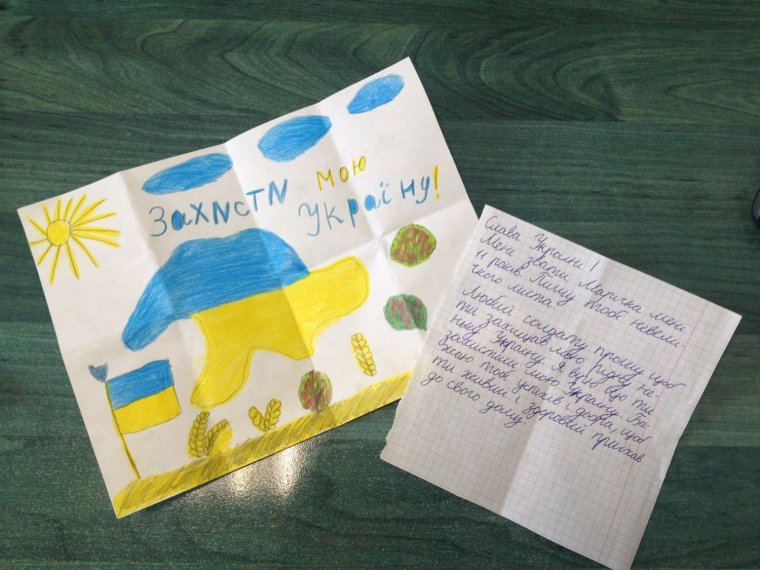 Захисти мою
Україну!
Слава Україні!
Мене звати Марічка мені
11 років. Пишу тобі невели-
чкого листа.
Любий солдату прошу щоб
ти захищав мою рідну не-
ньку Україну. Я вірю що ти
захистиш мою Україну. Ба-
жаю тобі успіхів і добра, щоб
ти живий і здоровий приїхав
до свого дому